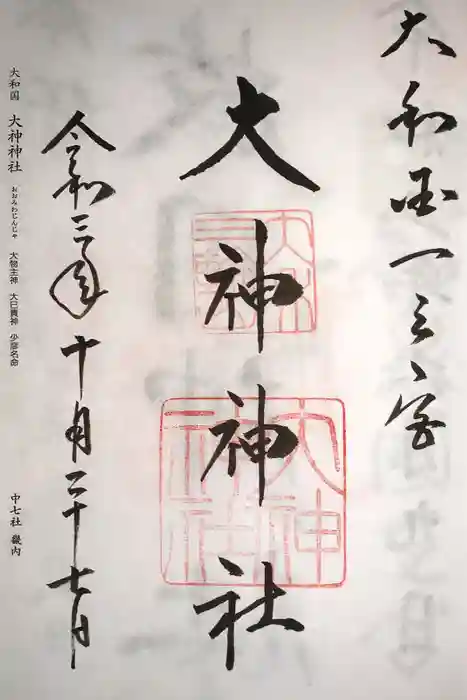 大和国一之宮
大神神社
大神
神社
令和三年十月二十七日
大和国 大神神社 おおみわじんじゃ 大物主神 大己貴神 少彦名命 中七社 畿内